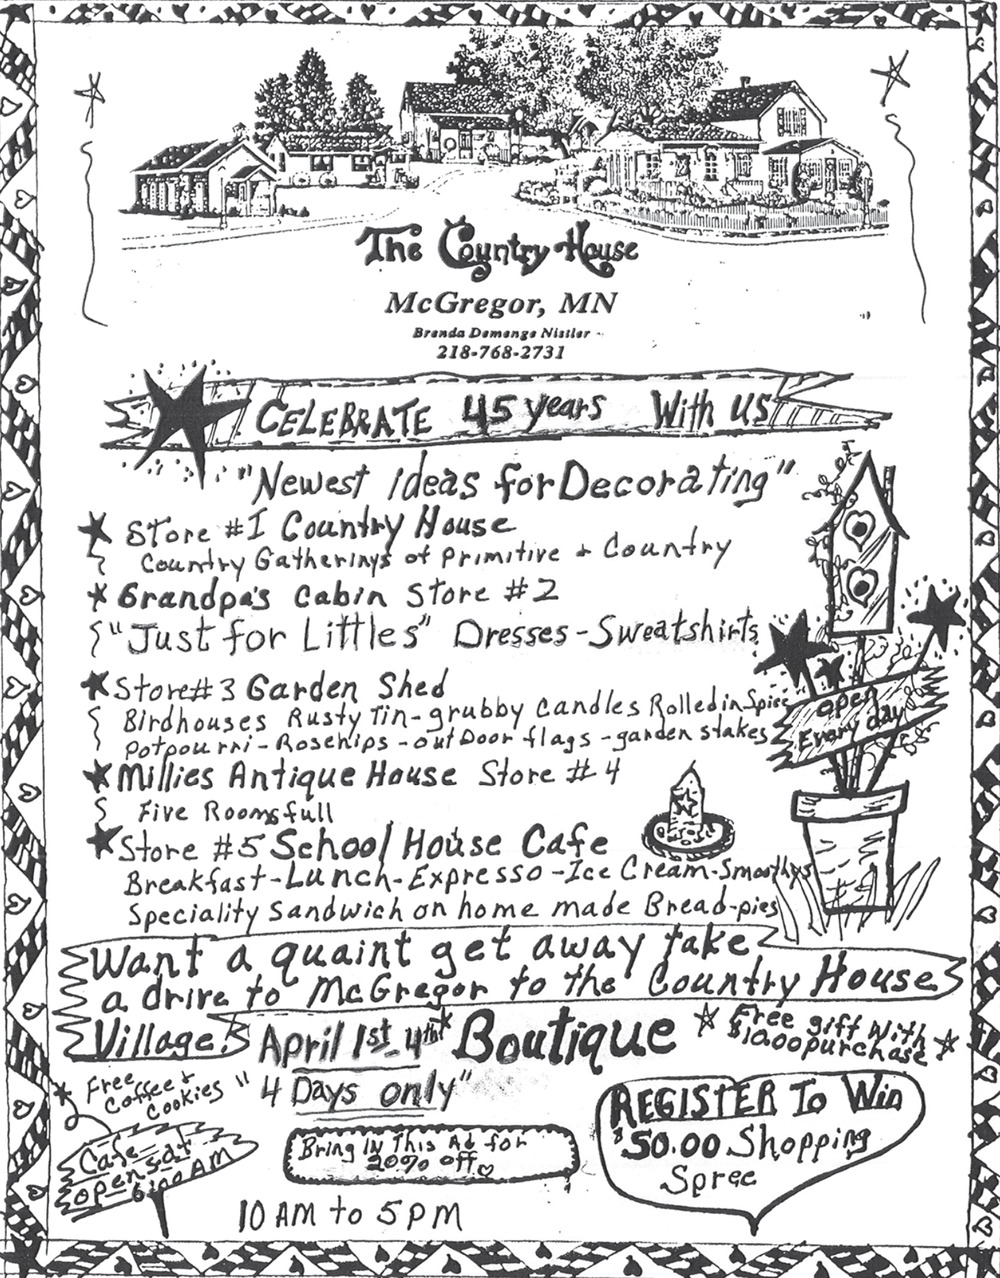 The Country House
McGregor, MN
Brenda Demenge Nistler
218-768-2731
CELEBRATE 45 years With us
"Newest ideas for Decorating"
Store #1 Country House
Country Gatherings of Primitive + Country
Grandpa's Cabin Store #2
"Just for Littles" Dresses-Sweatshirts
Store #3 Garden Shed
Birdhouses Rusty Tin-grubby Candles Rolled in Spice
Potpourri-Rosehips-outDoor flags-garden stakes
open
Every day
Millies Antique House Store #4
Five Rooms full
Store #5 School House Cafe
Breakfast-Lunch-Expresso-Ice Cream-Smoothys
Speciality Sandwich on home made Bread-pies
Want a quaint get away take
a drive to McGregor to the Country House
Village!
April 1st-4th* Boutique
Free gift With
$10.00 purchase
"4 Days only"
Free
Coffee +
Cookies
Cafe
opens at
6:00 AM
Bring In This Ad for
20% off
REGISTER To Win
$50.00 Shopping
Spree
10 AM to 5 PM